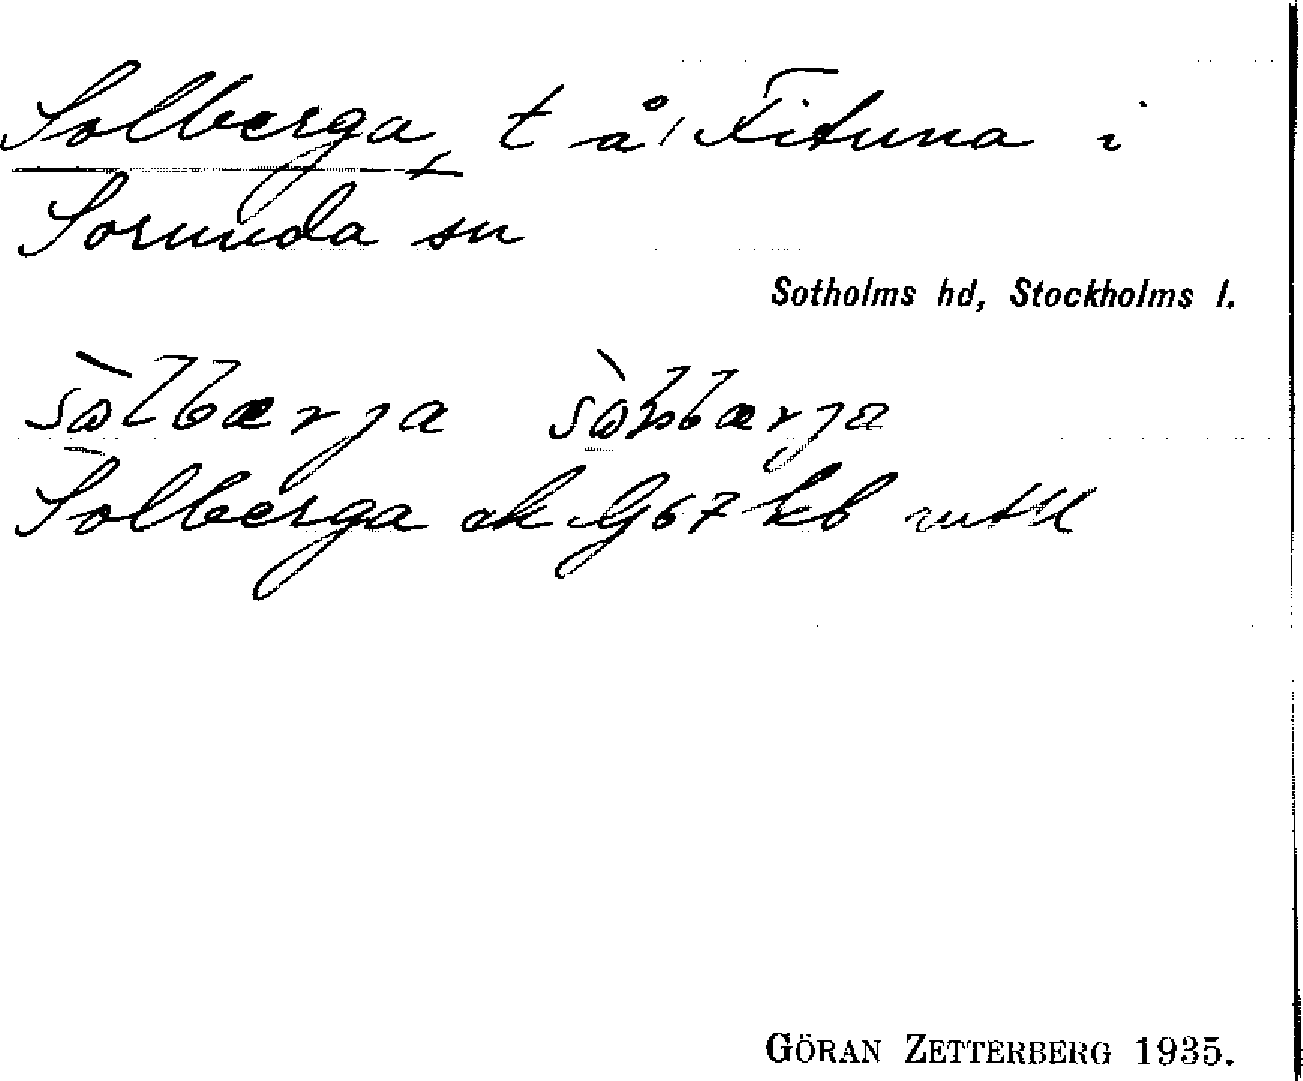 Solberga, t å, Fituna i
Sorunda sn
Sotholms hd, Stockholms l.
sòlbærja sòlbærja
Solberga ek G67 kb
GÖRAN ZETTERBERG 1935.